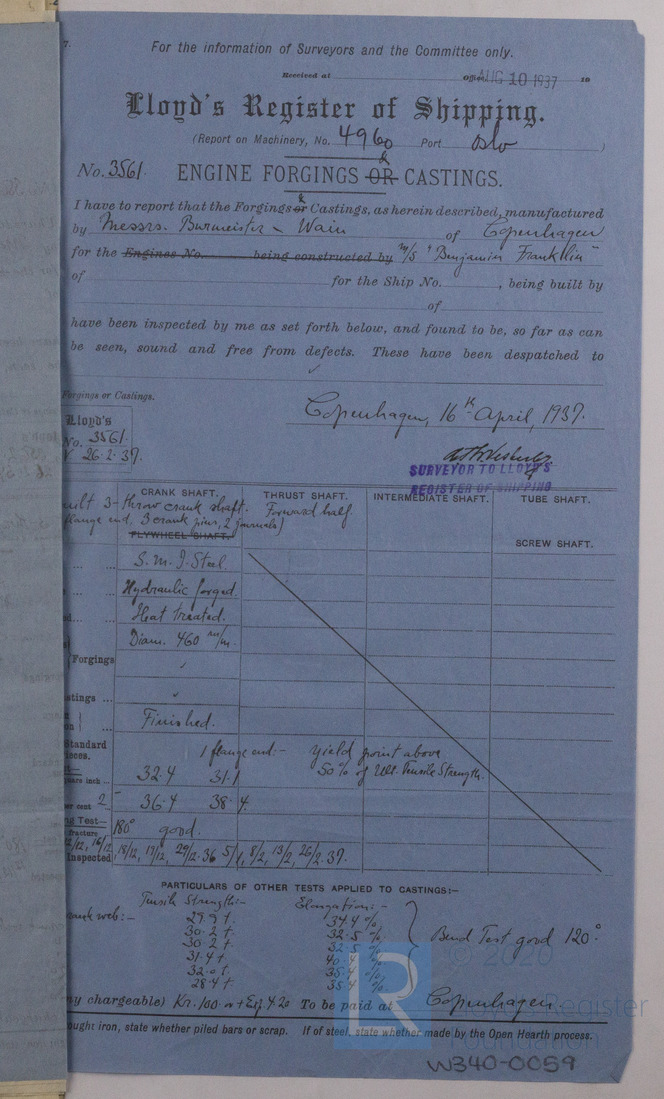 7.
For the information of Surveyors and the Committee only.
Received at Office AUG 10 1937 19
Lloyd's Register of Shipping.
(Report on Machinery, No. 4960 Port Oslo )
No. 3561. ENGINE FORGINGS OR & CASTINGS.
I have to report that the Forgings or & Castings, as herein described, manufactured
by Messrs. Burmeister & Wain of Copenhagen
for the Engines No. being constructed by M/S "Benjamin Franklin"
of for the Ship No. , being built by
of
have been inspected by me as set forth below, and found to be, so far as can
be seen, sound and free from defects. These have been despatched to
Forgings or Castings.
Copenhagen, 16th April, 1937.
Lloyd's
No. 3561.
26.2.37.
SURVEYOR TO LLOYD'S
REGISTER OF SHIPPING
CRANK SHAFT. THRUST SHAFT. INTERMEDIATE SHAFT. TUBE SHAFT.
built 3-throw crank shaft. Forward half.
(flange end, 3 crank pins, 2 journals)
FLYWHEEL SHAFT.
SCREW SHAFT.
S.M.I. Steel.
Hydraulic forged.
Heat treated.
Diam. 460 m/m.
Forgings
stings ...
Finished.
Standard
ieces.
1 flange end:- Yield point above
32.4 31.1 50% of Ult. Tensile Strength.
uare inch ...
er cent 2" 36.4 38.4.
ng Test—
fracture 180° good.
12/12, 16/12,
Inspected 18/12, 19/12, 29/12.36 5/1, 8/2, 13/2, 26/2.37.
PARTICULARS OF OTHER TESTS APPLIED TO CASTINGS:—
Tensile Strength:- Elongation:-
crank web:- 29.9 t. 34.4 %
30.2 t. 32.5 %
30.2 t. 32.5 %
31.4 t. 40.4 %
32.0 t. 35.4 %
28.4 t. 35.4 %
Bend Test good 120°.
ny chargeable) Kr. 100.- + Exp. 4.20 To be paid at Copenhagen.
ought iron, state whether piled bars or scrap. If of steel, state whether made by the Open Hearth process.
© 2020
Lloyd's Register
Foundation
W340-0059